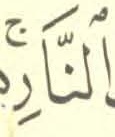 ٱلنَّارِۚ